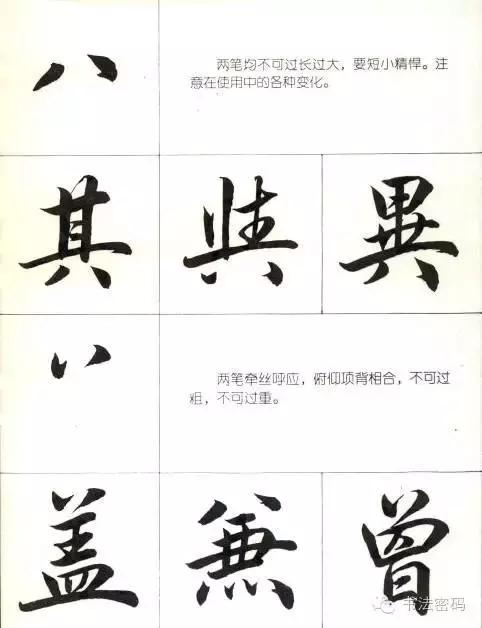 八
两笔均不可过长过大，要短小精悍。注
意在使用中的各种变化。
其 與 異
两笔牵丝呼应，俯仰顶背相合，不可过
粗，不可过重。
盖 兼 曾
书法密码